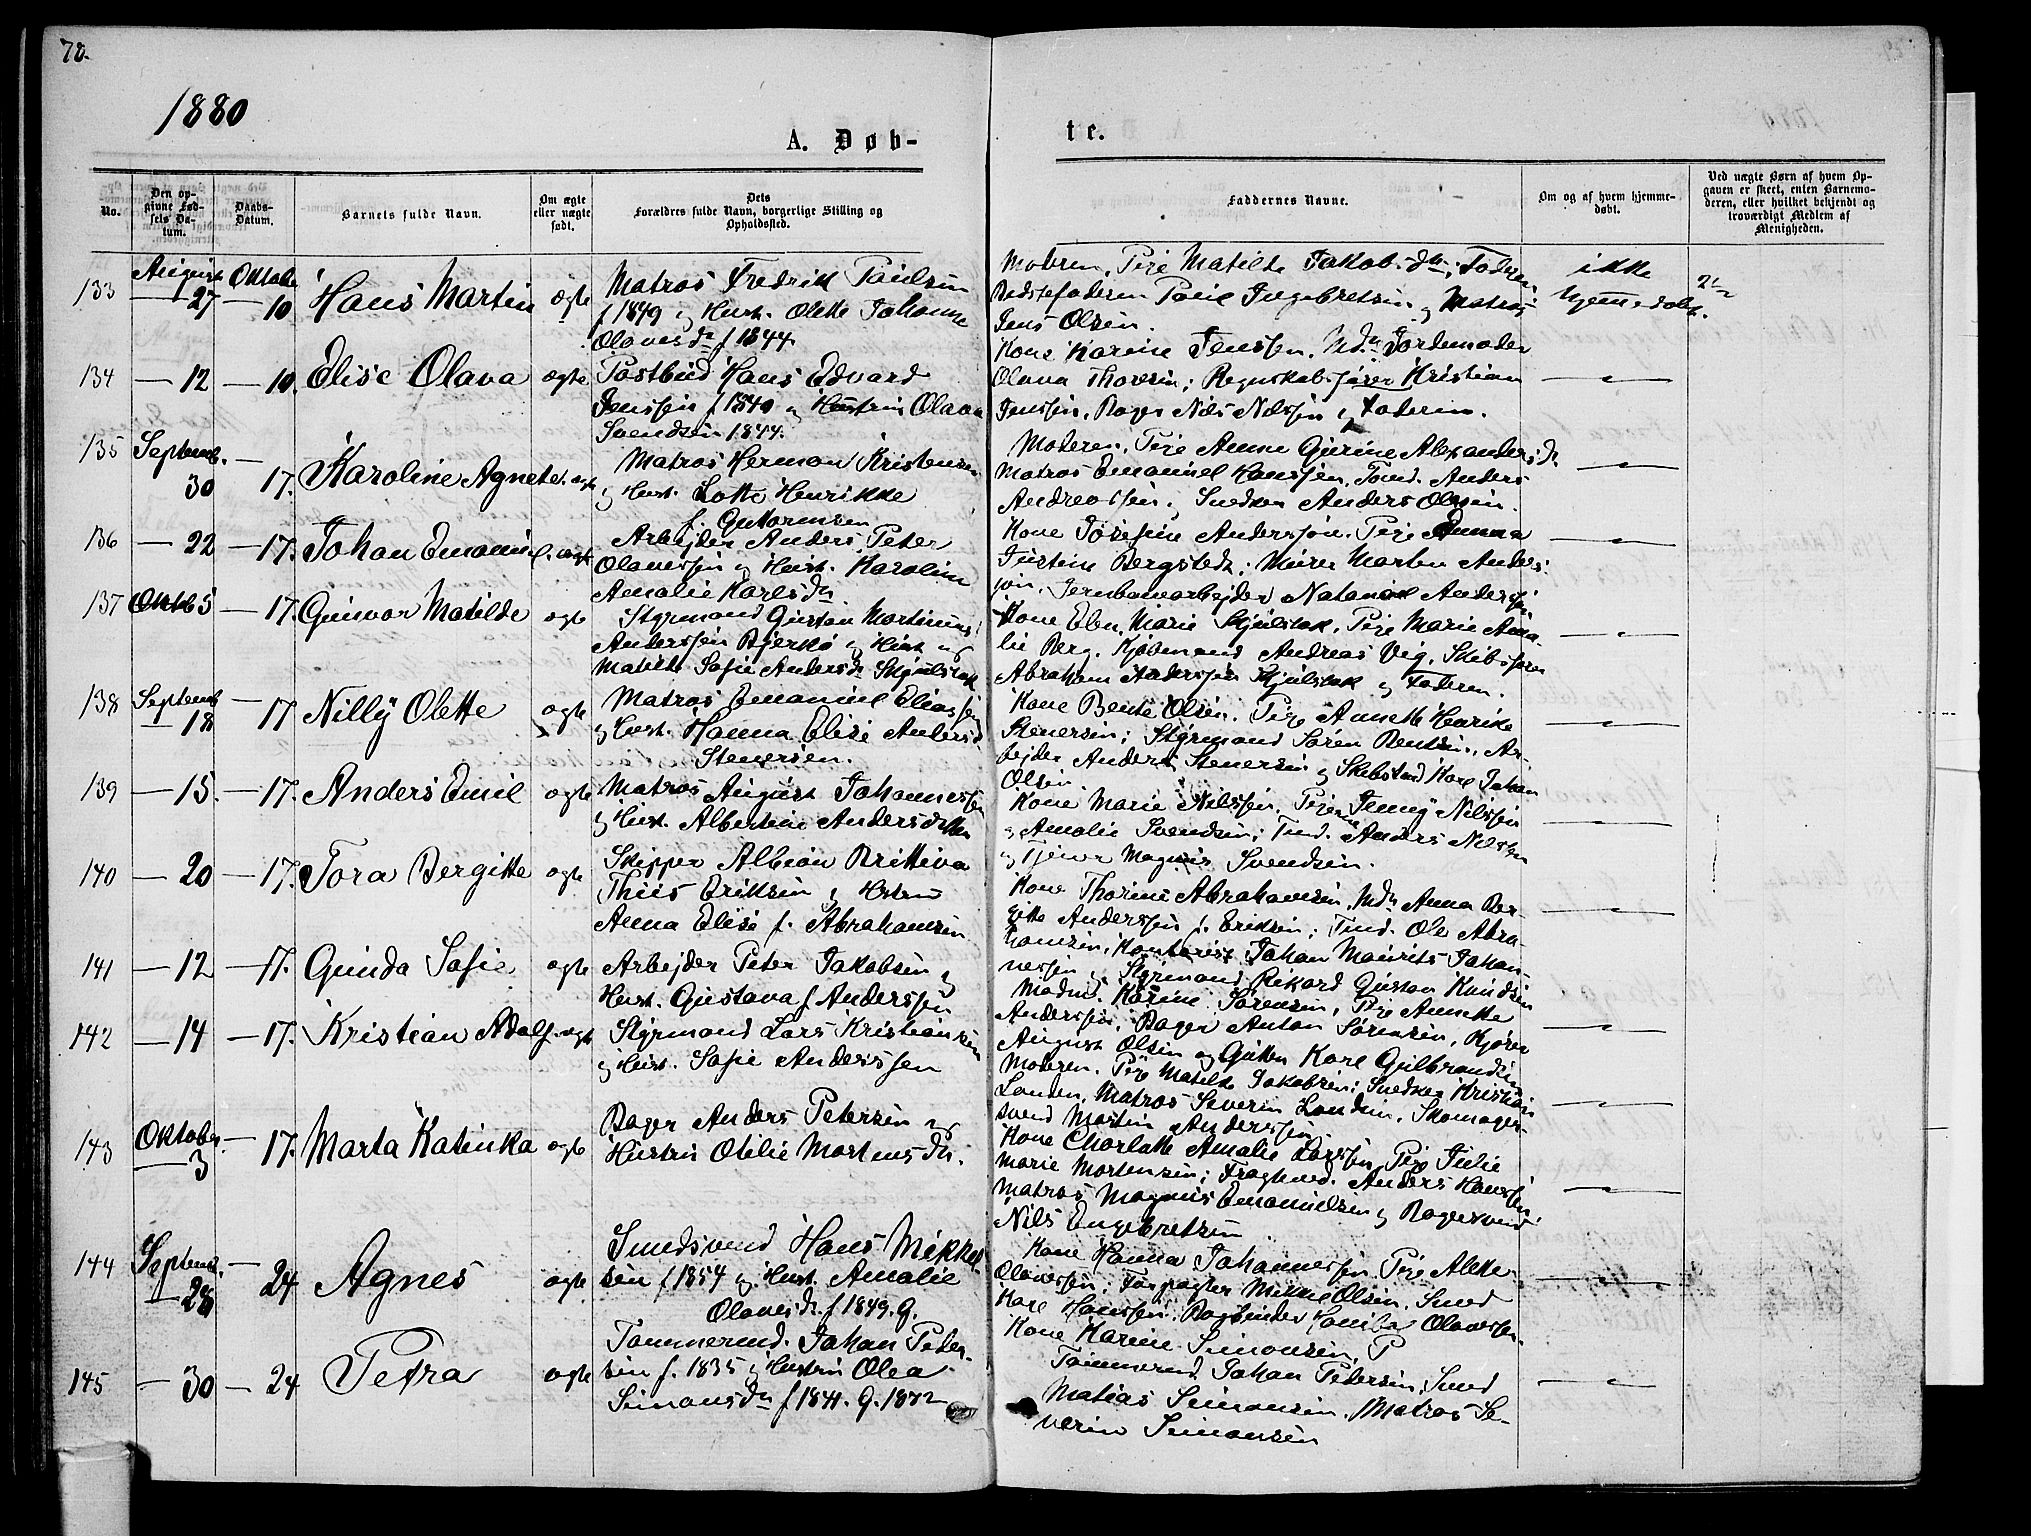 78.
1880
A. Døb-
te.
No.
Den op-
givne Fød-
sels Da-
tum.
Daabs-
Datum.
Barnets fulde Navn.
Om ægte
eller uægte
født.
Dets
Forældres fulde Navn, borgerlige Stilling og
Opholdssted.
Faddernes Navne.
Om og af hvem hjemme-
døbt.
Ved uægte Børn af hvem Op-
gaven er skeet, enten Barnemo-
deren, eller hvilket bekjendt og
troværdigt Medlem af
Menigheden.
133 August 27 Oktobr 10 Hans Martin ægte
Matros Fredrik Paulsen
f 1849 og Hust. Olette Johanne
Olavesdr f 1844.
Moderen, Pige Matilde Jakobsdr; Faderen
Bedstefaderen Poul Ingebretsen og Matros
Jens Olsen.
ikke
hjemmedøbt.
134 — 12 — 10. Elise Olava ægte
Postbud Hans Edvard
Jenssen f 1840 og Hustru Olava
Svendsen 1844.
Kone Karine Jenssen, Mdm Jordemoder
Olava Thoresen; Regnskabsfører Kristian
Jenssen, Bager Nils Nilssen og Faderen.
135 Septemb. 30 — 17. Karoline Agnete. ægt
Matros Herman Kristensen
og Hust. Lotte Henrikke
f. Guttormsen
Moderen, Pige Anne Gurine Alexandersdr
Matros Emanuel Hanssen, Tømd. Anders
Andreassen og Snedker Anders Olsen.
136 — 22 — 17. Johan Emanuel. ægt
Arbejder Anders Peter
Olavessen og Hust. Karoline
Amalie Karlsdr
Kone Josefine Andersson, Pige Anna
Justine Bergstedt; Murer Morten Anders-
son, Jernbanearbejder Natanael Anderssøn
137 Oktb 5 — 17. Gunvor Matilde ægte
Styrmand Gustav Martinius
Anderssen Bjerkø og Hust
Matilde Sofie Andersdr Skjulstok
Kone Elen Marie Skjulstok, Pige Marie Ama-
lie Berg, Kjøbmand Andreas Vig, Skibsfører
Abraham Anderssen Skjulstok og Faderen.
138 Septemb — 18 — 17 Nilly Olette ægte
Matros Emanuel Eliassen
og Hust. Hanna Elise Andersd
Stenersen.
Kone Bente Olsen, Pige Annette Henrike
Stenersen; Styrmand Søren Bentsen, Ar-
bejder Anders Stenersen og Skibstmd Karl Johan
Olsen.
139 — 15. — 17. Anders Emil ægte
Matros August Johannessen
og Hust. Albertine Andersdatter
Kone Marie Nilssen, Pige Jenny Nilssen
og Amalie Svendsen; Tmd. Anders Nilssen
og Tjener Magnus Svendsen.
140 — 20 — 17. Tora Bergitte ægte
Skipper Albion Brittiva
Thiis Eriksen og Hstru
Anna Elise f. Abrahamsen
Kone Thorine Abrahamsen, Mdm Anna Ber-
gitte Anderssen f. Eriksen; Tmd. Ole Abra-
hamsen, Kontorist Johan Maurits Johan-
nessen og Styrmand Rikard Gustav Knudsen
141 — 12 — 17. Gunda Sofie ægte
Arbejder Peter Jakobsen og
Hust. Gustava f Anderssen
Madm. Karine Sørensen, Pige Annette
Anderssen, Bager Anton Sørensen, Kjører
August Olsen og Gutten Karl Gulbrandsen
142 — 14 — 17. Kristian Adolf. ægt
Styrmand Lars Kristiansen
og Hust. Sofie Anderssen
Moderen, Pige Matilde Jakobsen; Snedker Kristian
Lunden, Matros Severin Lunden, Skomager-
svend Martin Anderssen
143 Oktober 3 — 17. Marta Katinka ægte
Bager Anders Petersen og
Hustru Otilie Mortensdr.
Kone Charlotte Amalie Larssen, Pige Julie
Marie Mortensen; Fragtmd. Anders Hanssen
Matros Magnus Emanuelsen og Bagersvend
Nils Engebretsen
144 Septemb. — 28 — 24 Agnes ægte
Smedsvend Hans Mikkel-
sen f 1854 og Hust. Amalie
Olavesdr. f 1849. G.
Kone Hanna Johannessen, Pige Alette
Olavessen; Forpagter Mikkel Olsen, Smed
Karl Hanssen, Bogbinder Olavessen.
145 — 30 — 24 Petra ægte
Tømmermd. Johan Peder-
sen f. 1835 og Hustru Olea
Simonsdr f 1841. G. 1872
Kone Karine Simonsen, P
Tømmermd Johan Pedersen, Smed
Matias Simonsen, Matros Se-
verin Simonsen